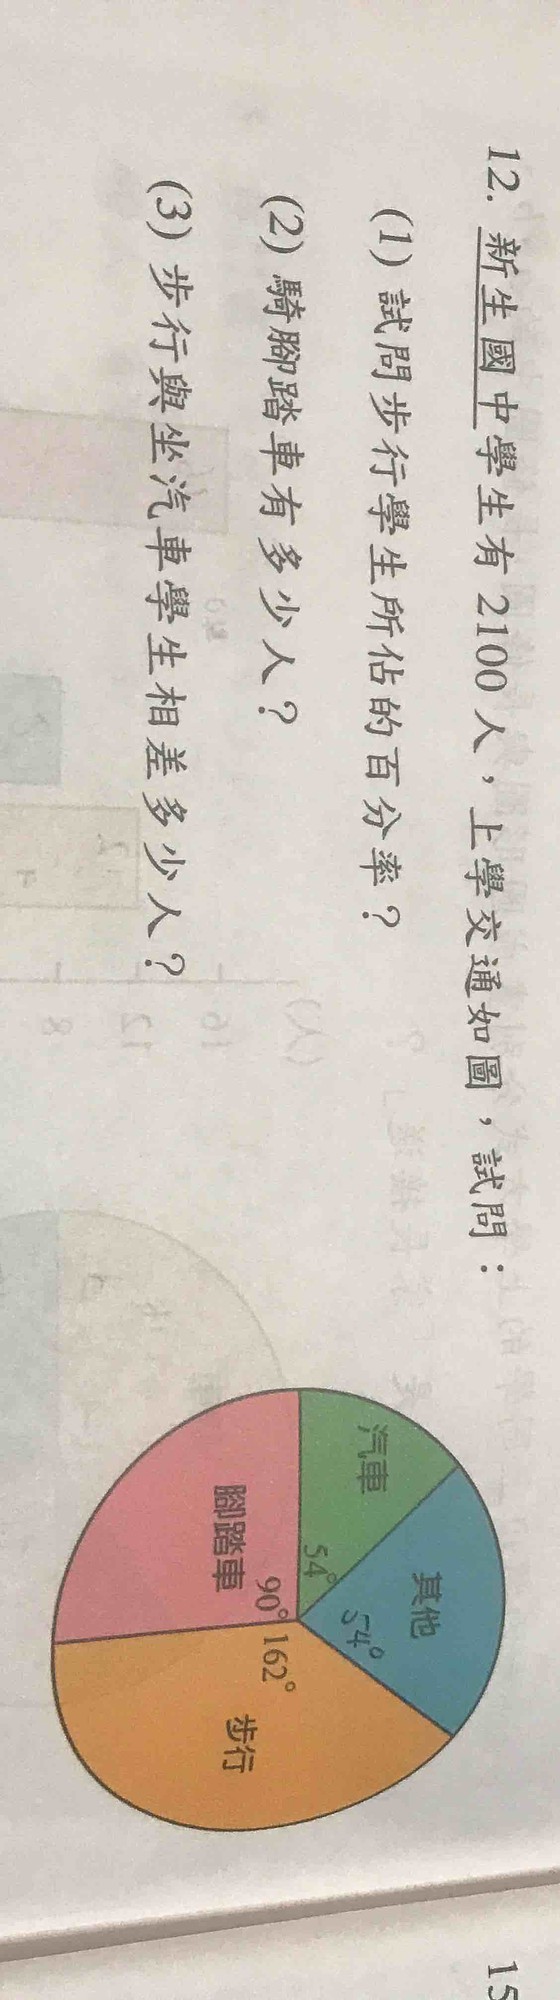 12. 新生國中學生有 2100 人，上學交通如圖，試問：
(1) 試問步行學生所佔的百分率？
(2) 騎腳踏車有多少人？
(3) 步行與坐汽車學生相差多少人？
汽車
54°
其他
54°
腳踏車
90°
162°
步行
15